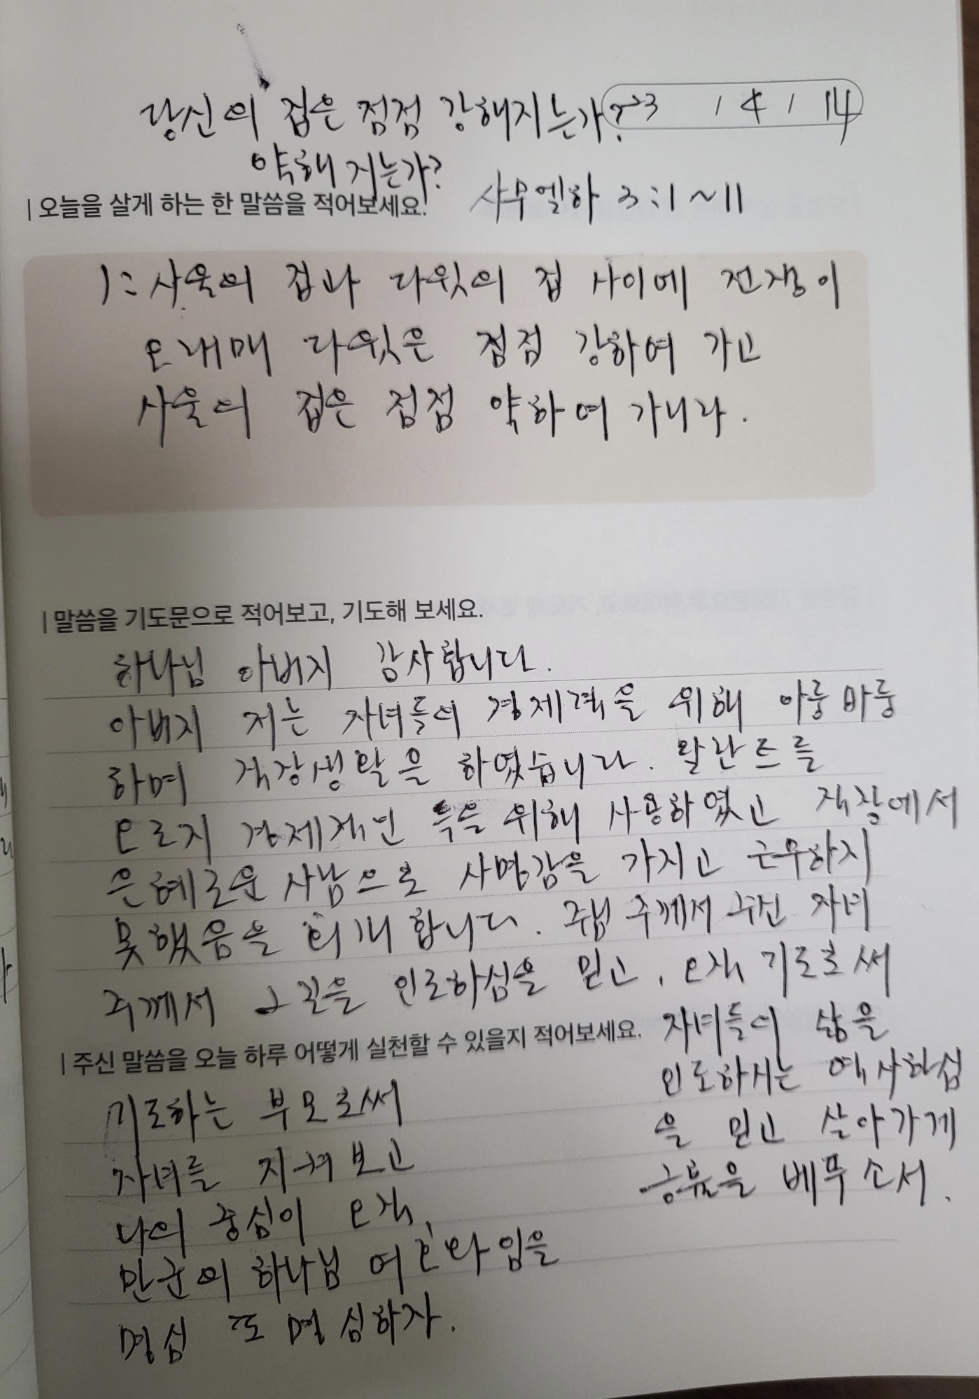 당신의 집은 점점 강해지는가? 23 / 4 / 14
약해 지는가?
| 오늘을 살게 하는 한 말씀을 적어보세요. 사무엘하 3:1~11
1: 사울의 집과 다윗의 집 사이에 전쟁이
오래매 다윗은 점점 강하여 가고
사울의 집은 점점 약하여 가니라.
| 말씀을 기도문으로 적어보고, 기도해 보세요.
하나님 아버지 감사합니다.
아버지 저는 자녀들의 경제력을 위해 아둥바둥
하며 직장생활을 하였습니다. 달란트를
오로지 경제적인 것을 위해 사용하였고 직장에서
은혜로운 사람으로 사명감을 가지고 근무하지
못했음을 회개합니다. 주님 주께서 주신 자녀
주께서 그 길을 인도하심을 믿고, 오직 기도로써
자녀들의 삶을
인도하시는 역사하심
을 믿고 살아가게
긍휼을 베푸소서.
| 주신 말씀을 오늘 하루 어떻게 실천할 수 있을지 적어보세요.
기도하는 부모로써
자녀를 지켜보고
나의 중심이 오직,
만군의 하나님 여호와임을
명심 또 명심하자.